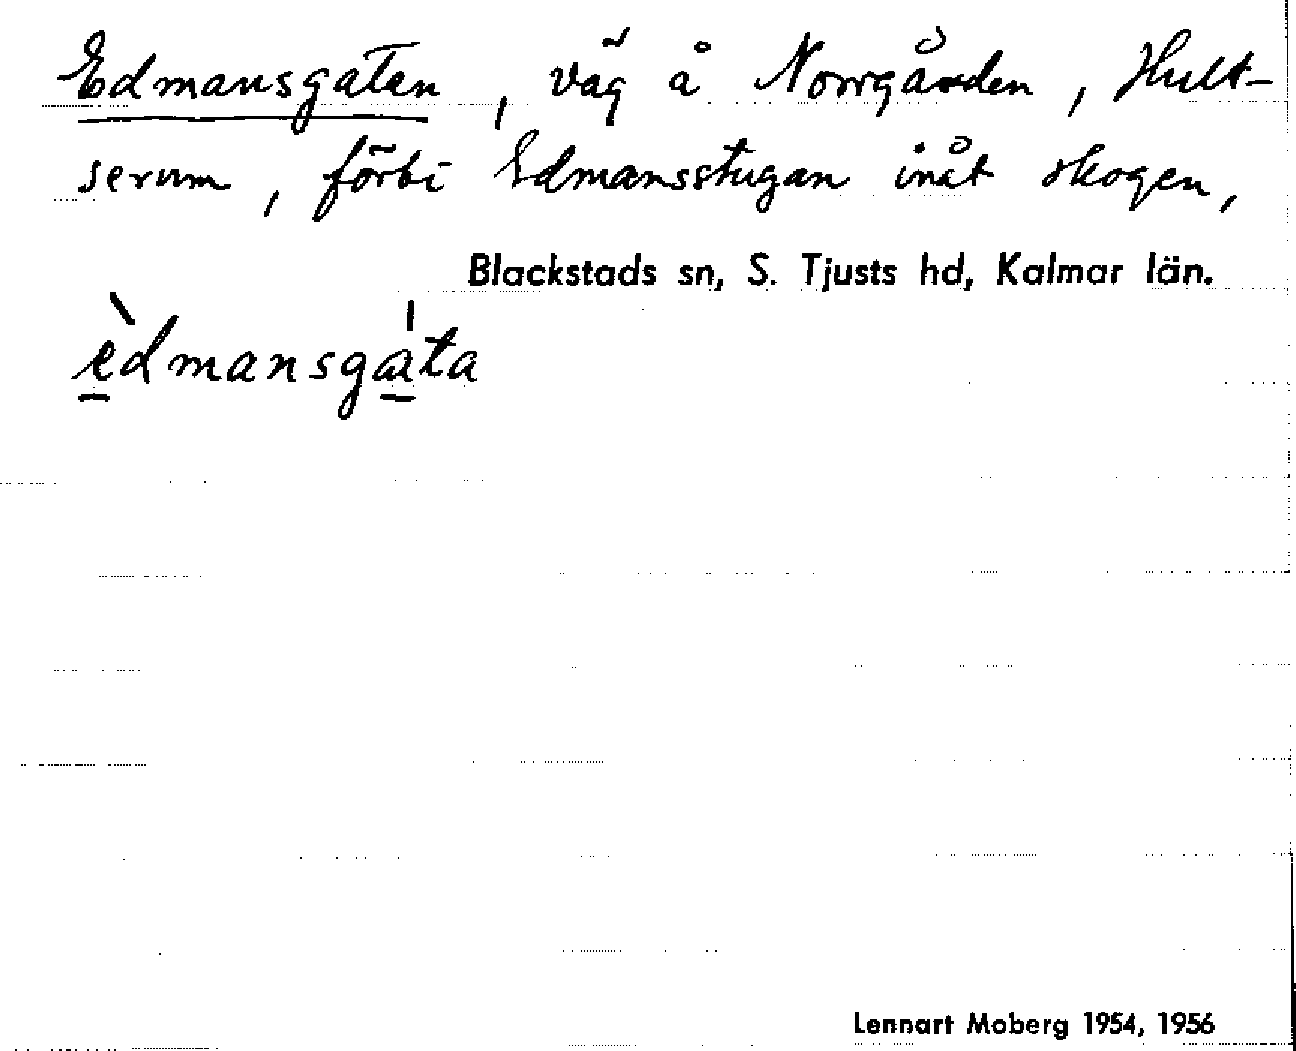 Edmansgatan, väg å Norrgården, Hult-
serum, förbi Edmansstugan inåt skogen,
Blackstads sn, S. Tjusts hd, Kalmar län.
èdmansgáta
Lennart Moberg 1954, 1956